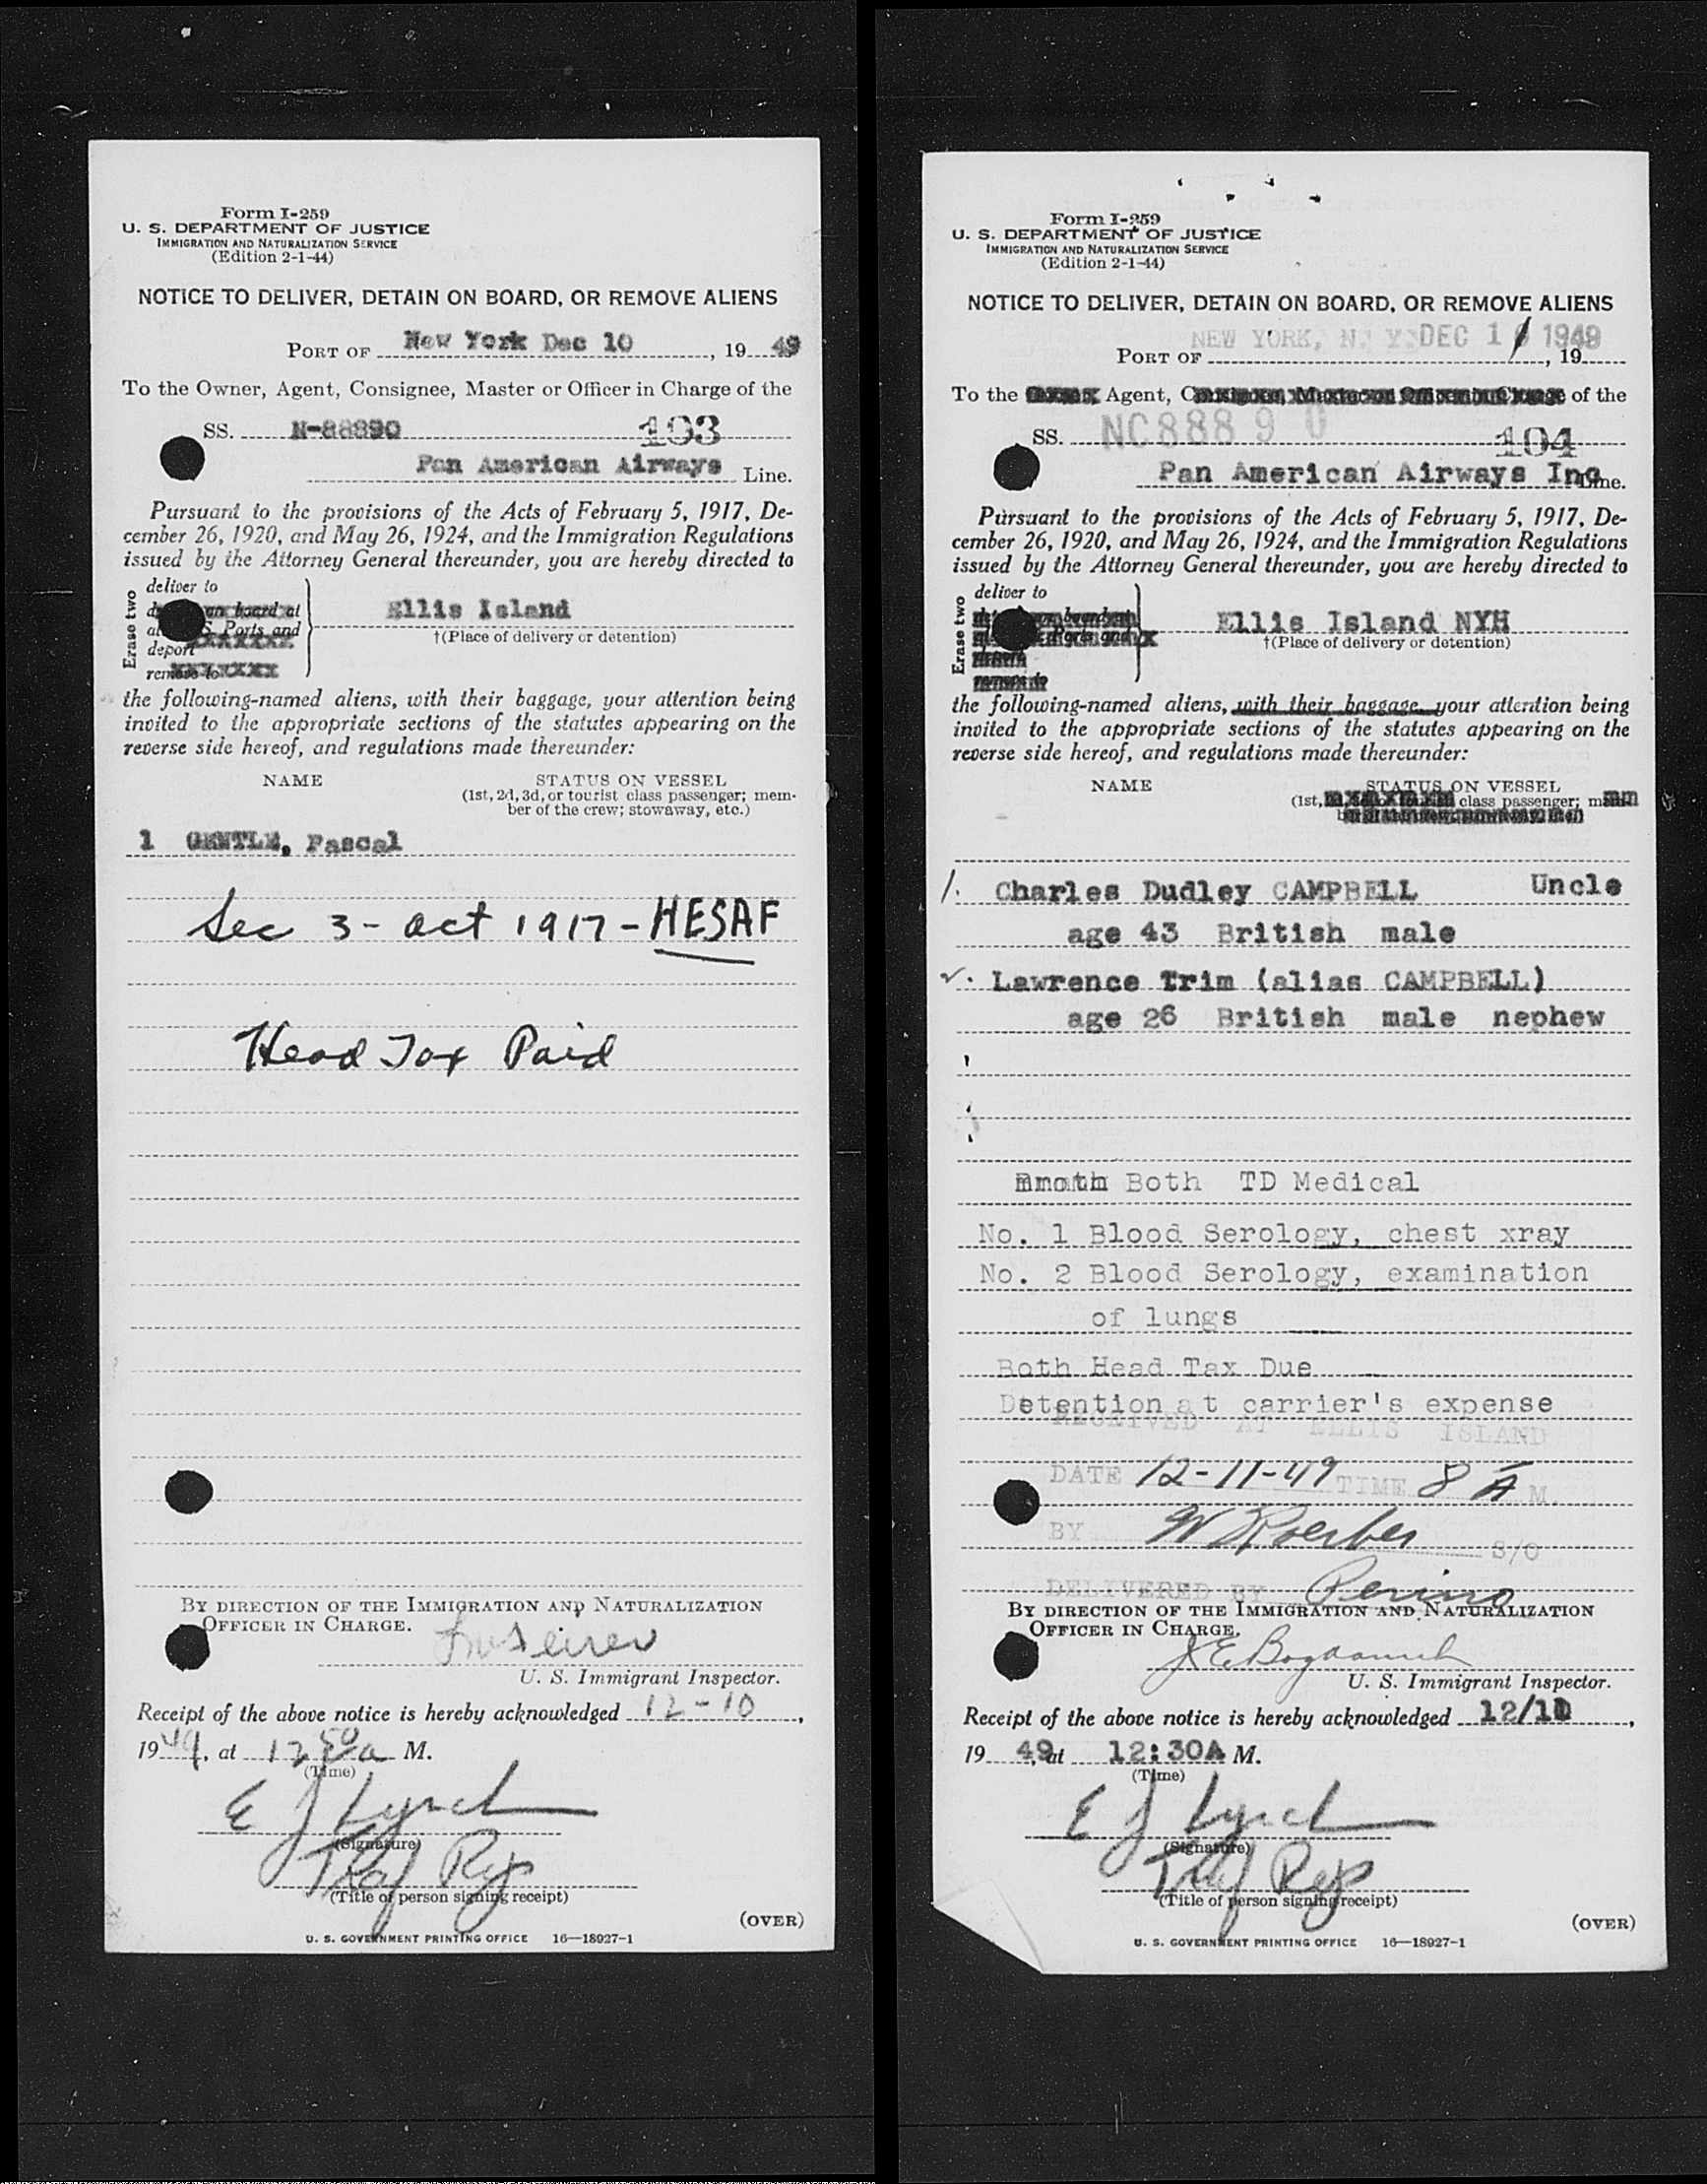 Form I-259
U. S. DEPARTMENT OF JUSTICE
IMMIGRATION AND NATURALIZATION SERVICE
(Edition 2-1-44)
NOTICE TO DELIVER, DETAIN ON BOARD, OR REMOVE ALIENS
PORT OF New York Dec 10, 19 49
To the Owner, Agent, Consignee, Master or Officer in Charge of the
SS. N-88890 103
Pan American Airways Line.
Pursuant to the provisions of the Acts of February 5, 1917, De-
cember 26, 1920, and May 26, 1924, and the Immigration Regulations
issued by the Attorney General thereunder, you are hereby directed to
Erase two
deliver to
on board at
Ports and
deport
remove to
Ellis Island
†(Place of delivery or detention)
the following-named aliens, with their baggage, your attention being
invited to the appropriate sections of the statutes appearing on the
reverse side hereof, and regulations made thereunder:
NAME STATUS ON VESSEL
(1st, 2d, 3d, or tourist class passenger; mem-
ber of the crew; stowaway, etc.)
1 GENTLE, Pascal
Sec 3 - act 1917 - HESAF
Head Tax Paid
BY DIRECTION OF THE IMMIGRATION AND NATURALIZATION
OFFICER IN CHARGE.
U. S. Immigrant Inspector.
Receipt of the above notice is hereby acknowledged 12-10,
19 49, at 12 50 a M.
(Time)
E J Lynch
(Signature)
Traf Rep
(Title of person signing receipt)
(OVER)
U. S. GOVERNMENT PRINTING OFFICE 16—18927-1
Form I-259
U. S. DEPARTMENT OF JUSTICE
IMMIGRATION AND NATURALIZATION SERVICE
(Edition 2-1-44)
NOTICE TO DELIVER, DETAIN ON BOARD, OR REMOVE ALIENS
NEW YORK, N. Y. DEC 1 1949
PORT OF , 19
To the Agent, of the
SS. NC88890 104
Pan American Airways Inc Line.
Pursuant to the provisions of the Acts of February 5, 1917, De-
cember 26, 1920, and May 26, 1924, and the Immigration Regulations
issued by the Attorney General thereunder, you are hereby directed to
Erase two
deliver to
remove to
Ellis Island NYH
†(Place of delivery or detention)
the following-named aliens, with their baggage, your attention being
invited to the appropriate sections of the statutes appearing on the
reverse side hereof, and regulations made thereunder:
NAME STATUS ON VESSEL
(1st, class passenger;
1. Charles Dudley CAMPBELL Uncle
age 43 British male
2. Lawrence Trim (alias CAMPBELL)
age 26 British male nephew
Both TD Medical
No. 1 Blood Serology, chest xray
No. 2 Blood Serology, examination
of lungs
Both Head Tax Due
Detention at carrier's expense
RECEIVED AT ELLIS ISLAND
DATE 12-11-49 TIME 8 A M.
BY S/O
DELIVERED BY Perino
BY DIRECTION OF THE IMMIGRATION AND NATURALIZATION
OFFICER IN CHARGE.
U. S. Immigrant Inspector.
Receipt of the above notice is hereby acknowledged 12/10,
19 49 at 12:30A M.
(Time)
E J Lynch
(Signature)
Traf Rep
(Title of person signing receipt)
(OVER)
U. S. GOVERNMENT PRINTING OFFICE 16—18927-1